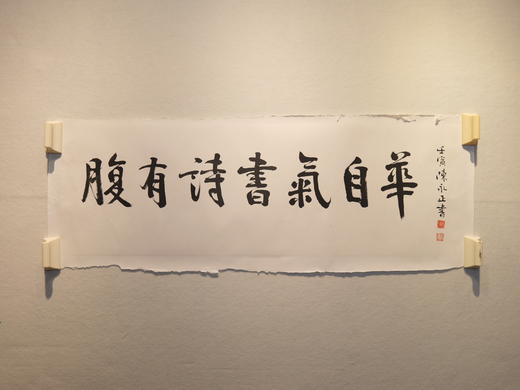 腹有詩書氣自華
壬寅陳永正書